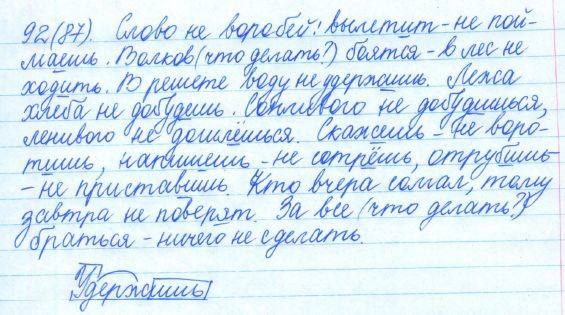 92(87). Слово не воробей: вылетит - не пой-
маешь. Волков (что делать?) боятся - в лес не
ходить. В решете воду не удержишь. Лежа
хлеба не добудешь. Сонливого не добудишься,
ленивого не дошлёшься. Скажешь - не воро-
тишь, напишешь - не сотрёшь, отрубишь -
- не приставишь. Кто вчера солгал, тому
завтра не поверят. За все (что делать?)
браться - ничего не сделать.
Удержишь